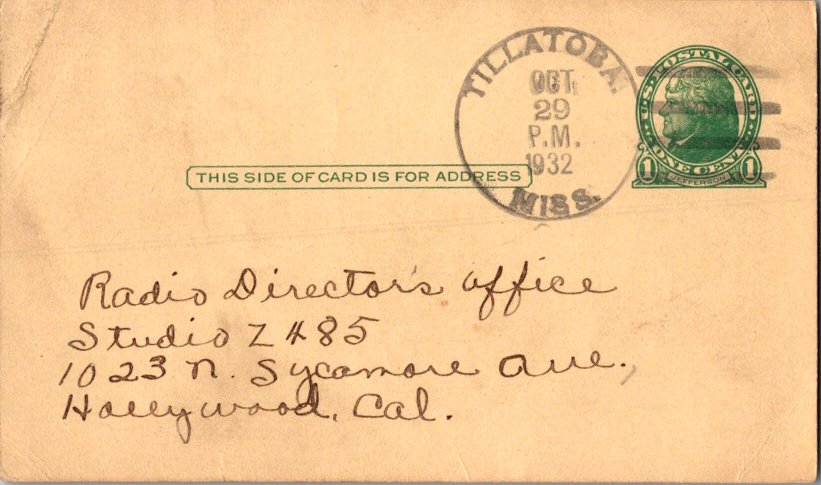 TILLATOBA.
OCT.
29
P.M.
1932
MISS.
U.S. POSTAL CARD
ONE CENT
1 JEFFERSON 1
THIS SIDE OF CARD IS FOR ADDRESS
Radio Director's office
Studio Z 485
1023 N. Sycamore Ave.,
Hollywood, Cal.